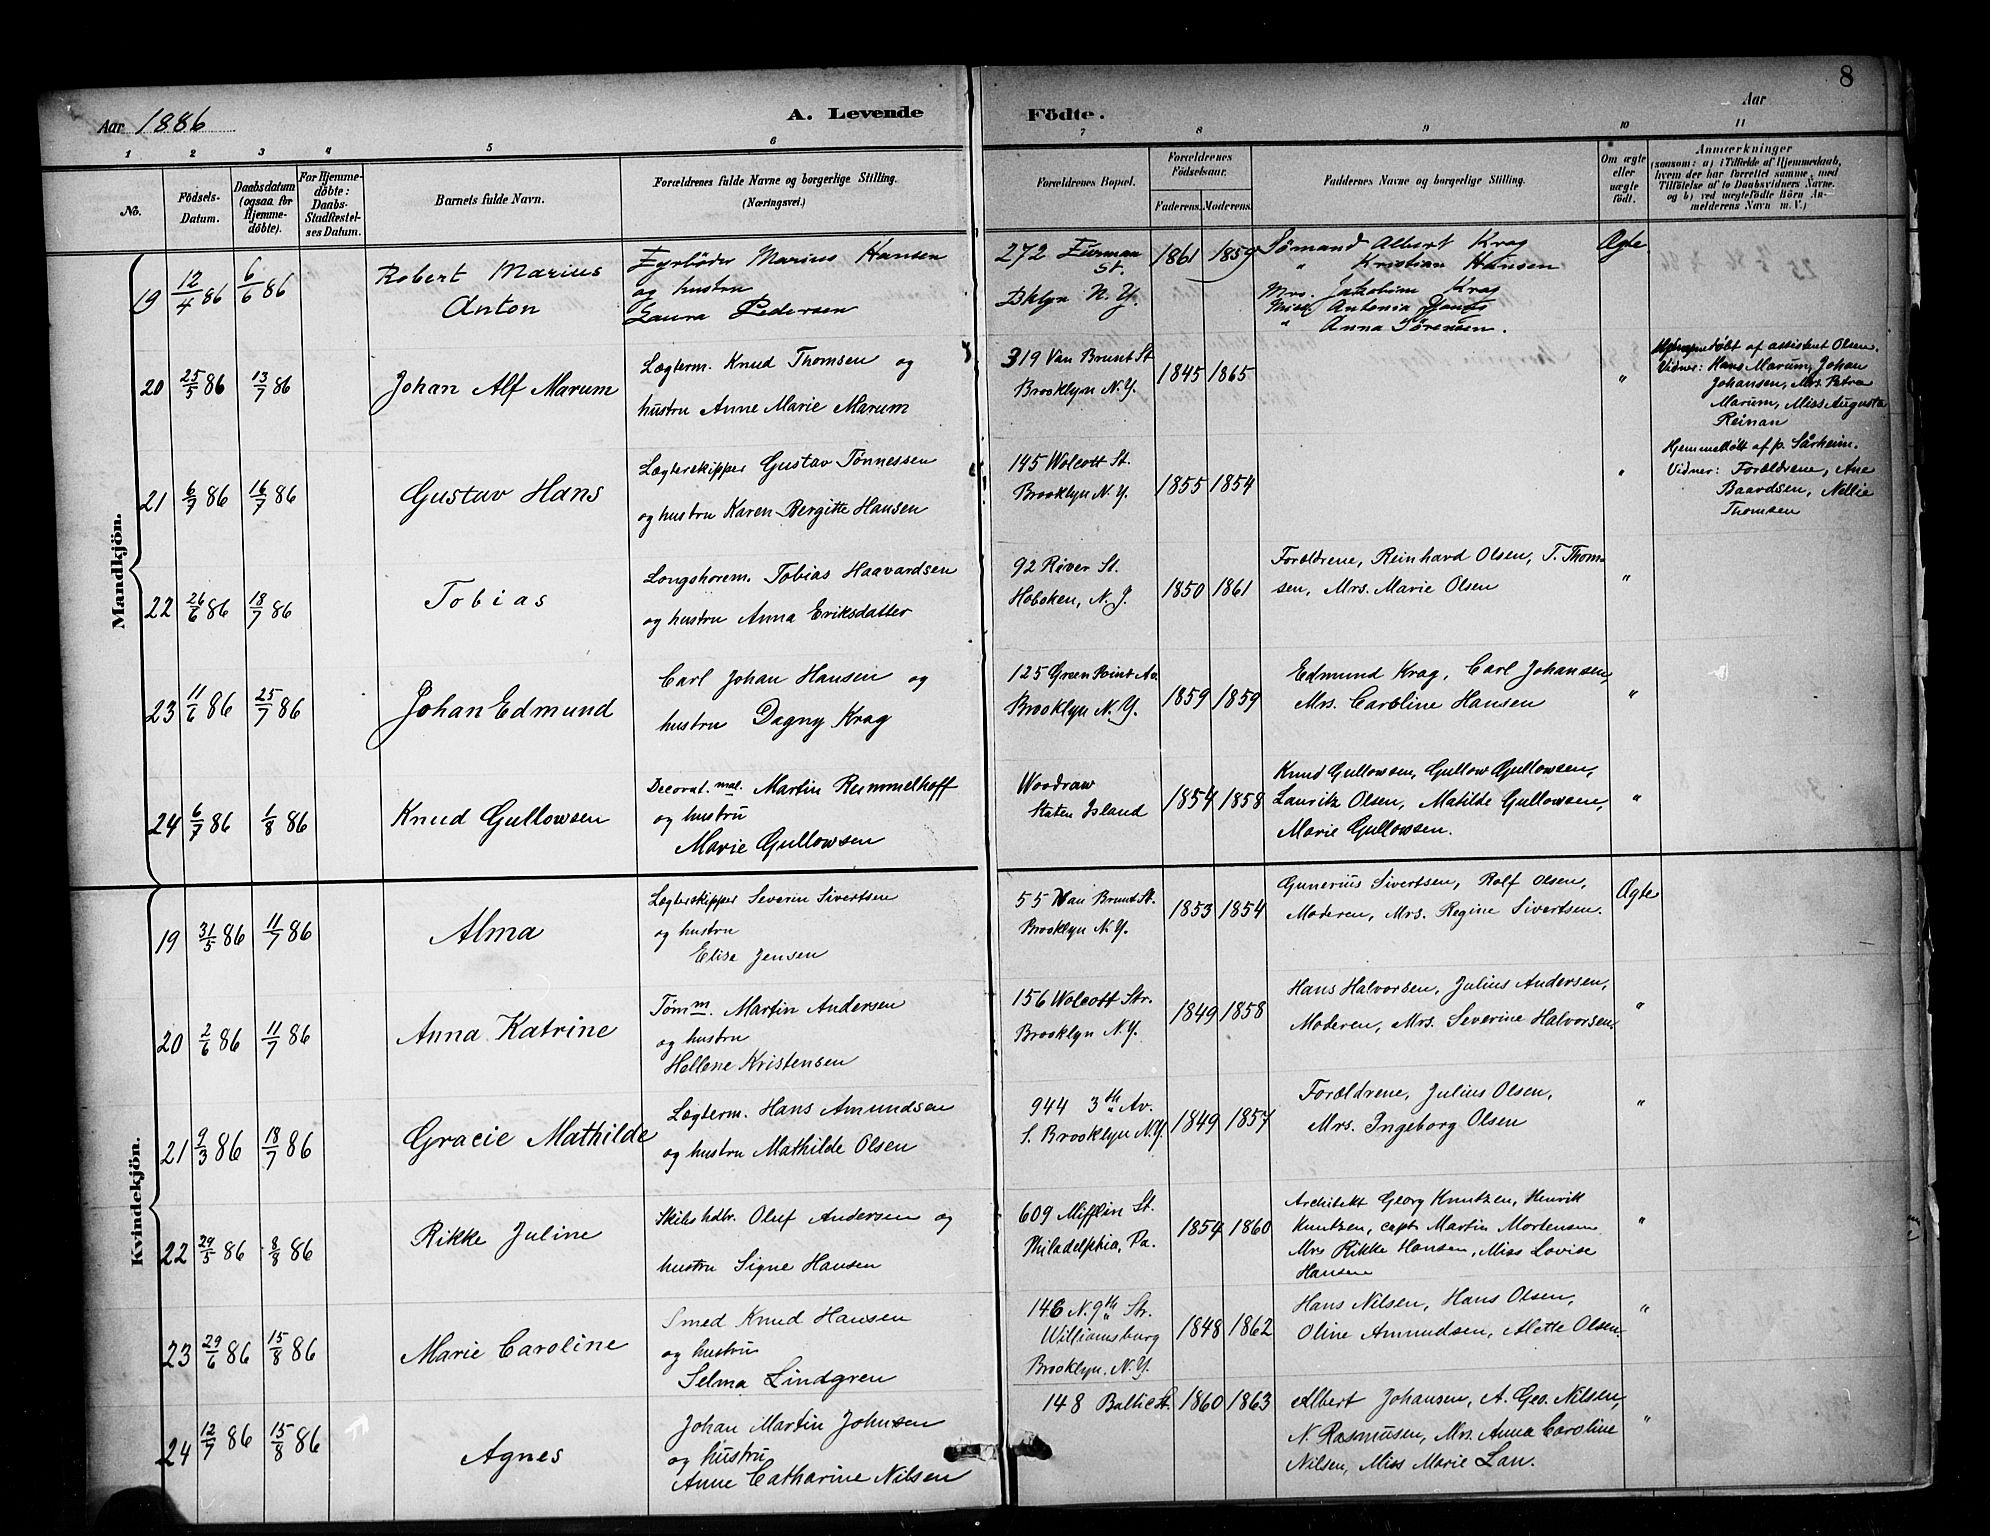 8
Aar 1886
A. Levende
Födte.
Aar
1 2 3 4 5 6 7 8 9 10 11
No.
Födsels-Datum.
Daabsdatum (ogsaa for Hjemme-döbte).
For Hjemme-döbte: Daabs-Stadfæstelses Datum.
Barnets fulde Navn.
Forældrenes fulde Navne og borgerlige Stilling.
(Næringsvei.)
Forældrenes Bopæl.
Forældrenes Födselsaar.
Faderens. Moderens.
Faddernes Navne og borgerlige Stilling.
Om ægte eller uægte födt.
Anmærkninger
(saasom: a) i Tilfælde af Hjemmedaab,
hvem der har forrettet samme, med
Tilföielse af to Daabsvidners Navne.
og b) ved uægtefödte Börn An-
melderens Navn m. V.)
Mandkjön.
19 12/4 86 6/6 86 Robert Marius
Anton
Fyrbøder Marius Hansen
og hustru
Laura Pedersen
272 St.
Bklyn N. Y.
1861 1859
Sømand Albert Krag
" Kristian Hansen
Mrs. Jakobine Krag
Miss Antonia
" Anna Sørensen.
Ægte
20 25/5 86 13/7 86 Johan Alf Marum
Lægterm. Knud Thomsen og
hustru Anne Marie Marum
319 Van Brunt St
Brooklyn N. Y.
1845 1865
"
Hjemmedøbt af assistent Olsen.
Vidner: Hans Marum, Johan
Johansen, Mrs. Petra
Marum, Miss Augusta
Reinan
21 6/7 86 16/7 86 Gustav Hans
Lægterskipper Gustav Tønnessen
og hustru Karen Bergitte Hansen
145 Wolcott St.
Brooklyn N. Y.
1855 1854
"
Hjemmedøbt af p. Sårheim.
Vidner: Forældrene, Ane
Baardsen, Nellie
Thomsen
22 26/6 86 18/7 86 Tobias
Longshorem. Tobias Haavardsen
og hustru Anna Eriksdatter
92 River St.
Hoboken, N. J.
1850 1861
Forældrene, Reinhard Olsen, T. Thom-
sen, Mrs. Marie Olsen
"
23 11/6 86 25/7 86 Johan Edmund
Carl Johan Hansen og
hustru Dagny Krag
125 Green Point Av.
Brooklyn N. Y.
1859 1859
Edmund Krag, Carl Johansen,
Mrs. Caroline Hansen
"
24 6/7 86 1/8 86 Knud Gullowsen
Decorat. mal. Martin Rummelhoff
og hustru
Marie Gullowsen
Woodraw
Staten Island
1854 1858
Knud Gullowsen, Gullow Gullowsen,
Lauritz Olsen, Matilde Gullowsen,
Marie Gullowsen.
"
Kvindekjön.
19 31/5 86 11/7 86 Alma
Lægterskipper Severin Sivertsen
og hustru
Elise Jensen
55 Van Brunt St.
Brooklyn N. Y.
1853 1854
Gunerius Sivertsen, Rolf Olsen,
Moderen, Mrs. Regine Sivertsen.
Ægte
20 2/6 86 11/7 86 Anna Katrine
Tømm. Martin Andersen
og hustru
Hellene Kristensen
156 Wolcott Str.
Brooklyn N. Y.
1849 1858
Hans Halvorsen, Julius Andersen,
Moderen, Mrs. Severine Halvorsen.
"
21 9/3 86 18/7 86 Gracie Mathilde
Lægterm. Hans Amundsen
og hustru Mathilde Olsen
944 3th Av.
S. Brooklyn N. Y.
1849 1857
Forældrene, Julius Olsen,
Mrs. Ingeborg Olsen
"
22 29/5 86 8/8 86 Rikke Juline
Skibshdlr. Oluf Andersen og
hustru Signe Hansen
609 Mifflin St.
Philadelphia, Pa.
1854 1860
Architekt Georg Knutzen, Henrik
Knutzen, capt. Martin Mortensen
Mrs Rikke Hansen, Miss Lovise
Hansen
"
23 29/6 86 15/8 86 Marie Caroline
Smed Knud Hansen
og hustru
Selma Lindgren
146 N. 9th Str.
Williamsburg
Brooklyn. N. Y.
1848 1862
Hans Nilsen, Hans Olsen,
Oline Amundsen, Mette Olsen
"
24 12/7 86 15/8 86 Agnes
Johan Martin Johnsen
og hustru
Anne Catharine Nilsen
148 Baltic St.
1860 1863
Albert Johansen, A. Geo. Nilsen,
N. Rasmusen, Mrs. Anna Caroline
Nilsen, Miss Marie Lan.
"